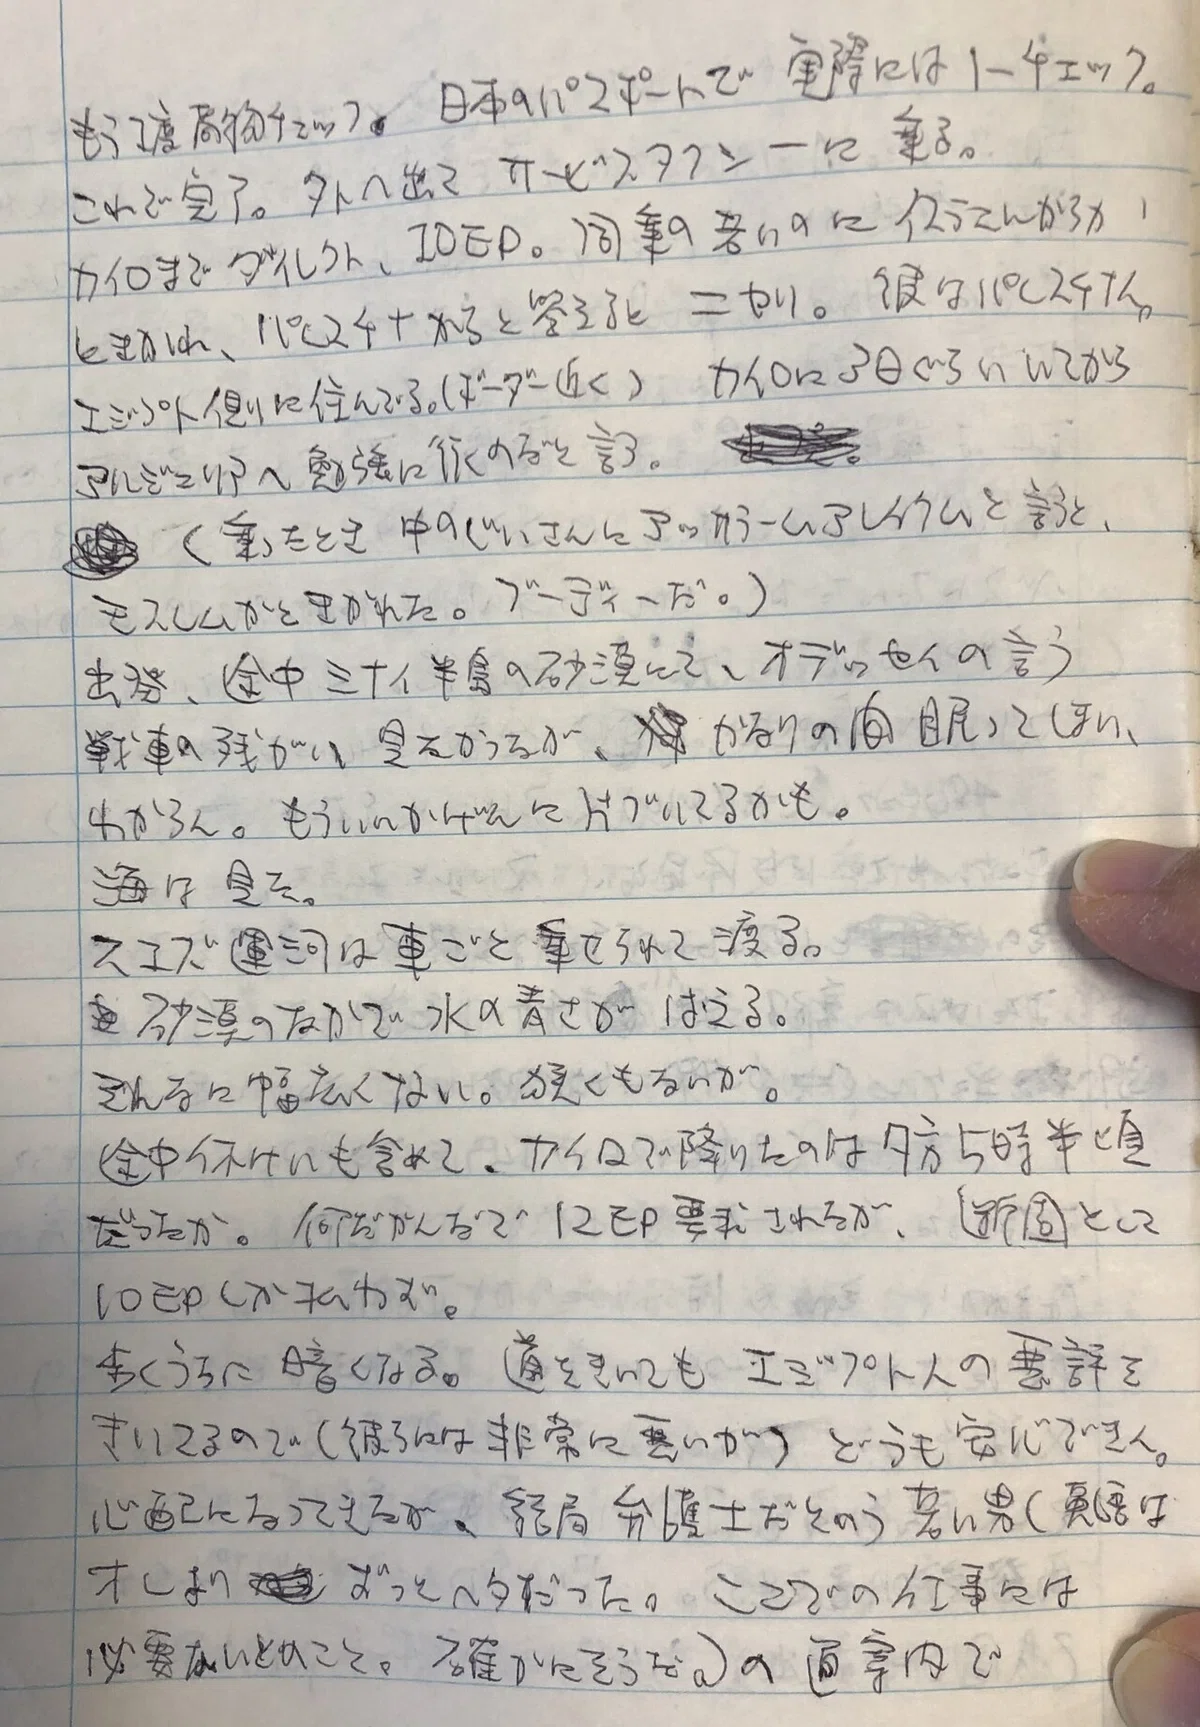 もう1度荷物チェック。日本のパスポートで実際にはノーチェック。
これで完了。外へ出てサービスタクシーに乗る。
カイロまでダイレクト、10EP。同乗の若いのにイスラエルからか
ときかれ、パレスチナからと答えるとニヤリ。彼はパレスチナ人。
エジプト側に住んでる。(ボーダー近く) カイロに3日ぐらいいてから
アルジェリアへ勉強に行くのだと言う。
(乗ったとき中のじいさんにアッサラームアレイクムと言うと、
モスレムかときかれた。ブーディーだ。)
出発、途中シナイ半島の砂漠にて、オデッセイの言う
戦車の残がい見たかったが、かなりの間眠ってしまい、
わからん。もういいかげんに片づいてるかも。
海は見た。
スエズ運河は車ごと乗せられて渡る。
砂漠のなかで水の青さがはえる。
そんなに幅広くない。狭くもないが。
途中休けいも含めて、カイロで降りたのは夕方5時半頃
だったか。何だかんだで12EP要求されたが、断固として
10EPしか払わず。
歩くうちに暗くなる。道をきいてもエジプト人の悪評を
きいてるので(彼らには非常に悪いが)どうも安心できん。
心配になってきたが、結局弁護士だという若い男(英語は
オレより ずっとヘタだった。ここでの仕事には
必要ないとのこと。確かにそうだ。)の道案内で